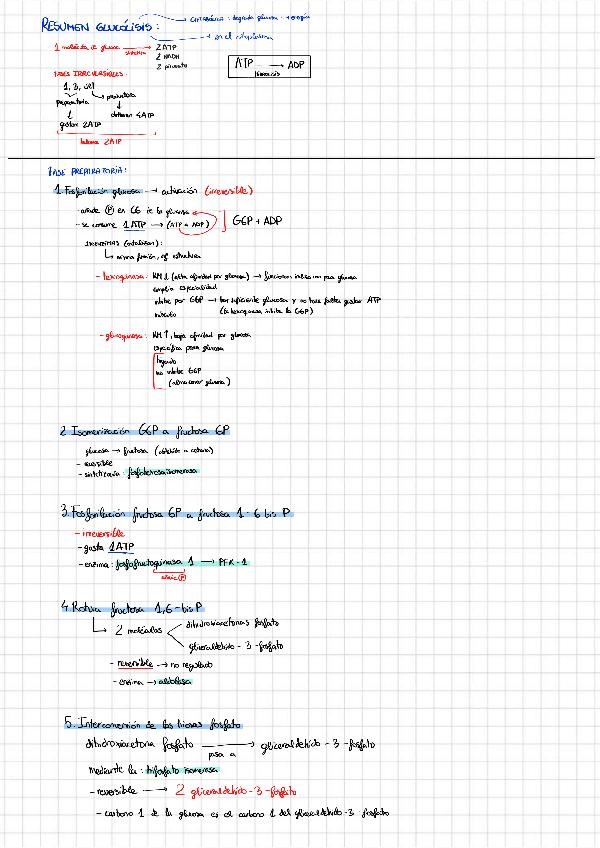 RESUMEN GLUCÓLISIS:
CATABÓLICA: degrada glucosa → energía
→ en el citoplasma
1 molécula de glucosa → 2 ATP
2 NADH
2 piruvato
ATP → ADP
HIDRÓLISIS
FASES IRREVERSIBLES:
1, 3,
preparatoria
productora
gastan 2ATP
obtienen 4ATP
balance 2ATP
FASE PREPARATORIA:
1. Fosforilación glucosa → activación (irreversible)
- añade P en C6 de la glucosa
- se consume 1 ATP → (ATP → ADP)
G6P + ADP
ISOENZIMAS (catalizan):
↳ misma función, ≠ estructura
- hexoquinasa: KM↓ (alta afinidad por glucosa) → funcionan para glucosa
amplia especialidad
inhibe por G6P → hay suficiente glucosa y no hace falta gastar ATP
músculo (la hexoquinasa inhibe la G6P)
- glucoquinasa: KM↑, baja afinidad por glucosa
específica para glucosa
hígado
no inhibe G6P
(almacenar glucosa)
2. Isomerización G6P a fructosa 6P
glucosa → fructosa (aldehído a cetona)
- reversible
- fosfohexosaisomerasa
3. Fosforilación fructosa 6P a fructosa 1-6 bis P
- irreversible
- gasta 1 ATP
- enzima: fosfofructoquinasa 1 → PFK-1
añade P
4. Rotura fructosa 1,6-bisP
↳ 2 moléculas
dihidroxiacetona fosfato
gliceraldehído-3-fosfato
- reversible → no regulado
- enzima → aldolasa
5. Interconversión de las triosas fosfato
dihidroxiacetona fosfato → gliceraldehído-3-fosfato
pasa a
mediante la: triosfosfato isomerasa
- reversible → 2 gliceraldehído-3-fosfato
- carbono 1 de la glucosa es el carbono 1 del gliceraldehído-3 fosfato